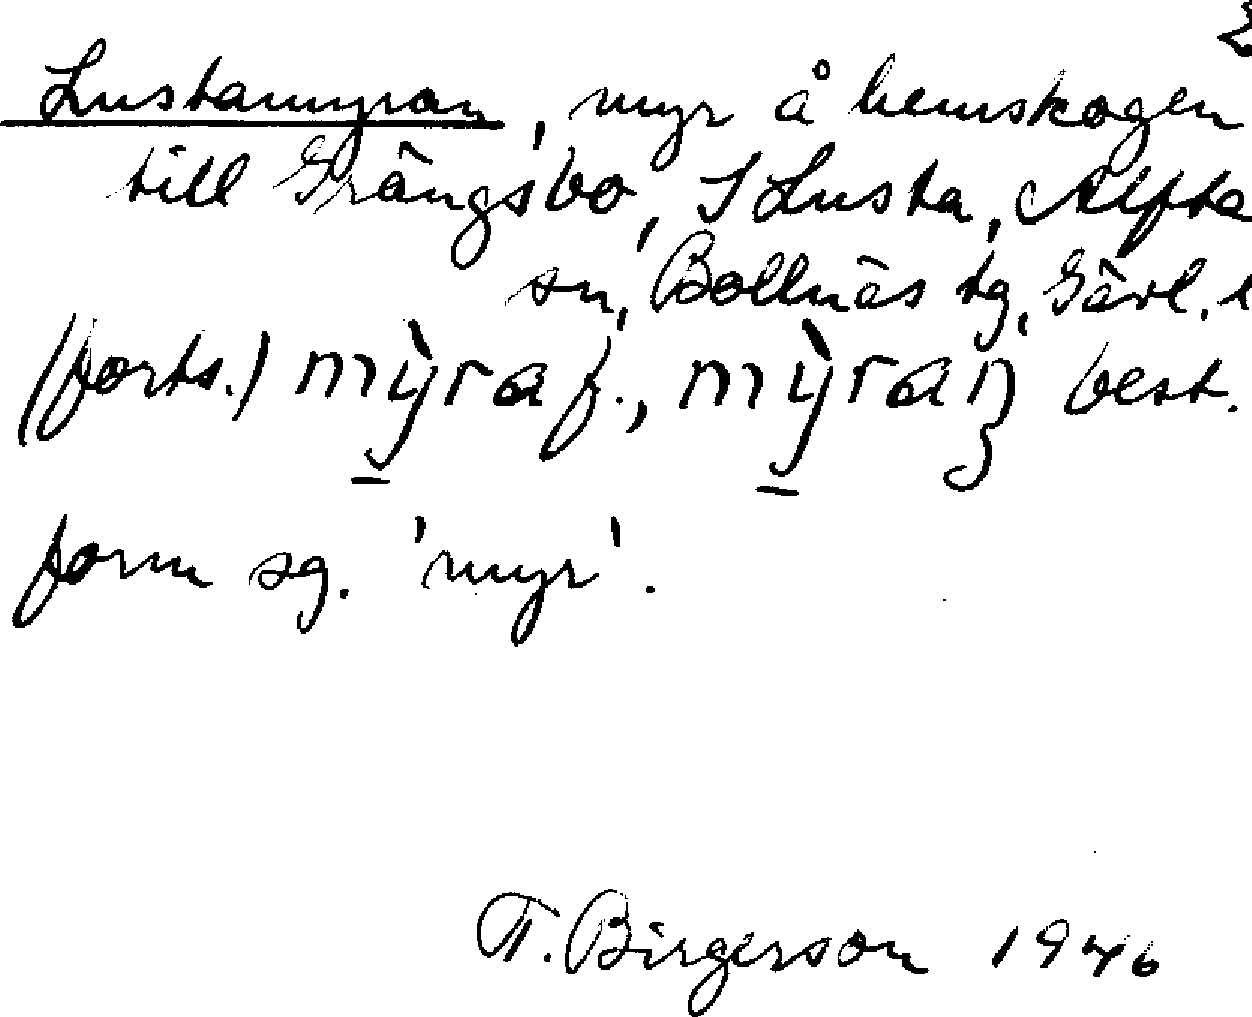 2
Lustamyran, myr å hemskogen
till Grängsbo, I Lusta, Alfta
sn, Bollnäs tg, Gävl. l
(forts.) mỳra f., mỳraṇ best.
form sg. 'myr'.
T. Birgerson 1946